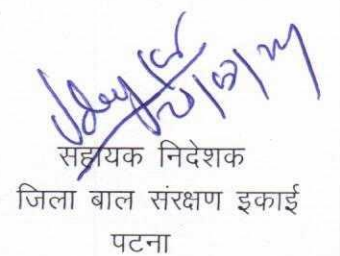 सहायक निदेशक
जिला बाल संरक्षण इकाई
पटना